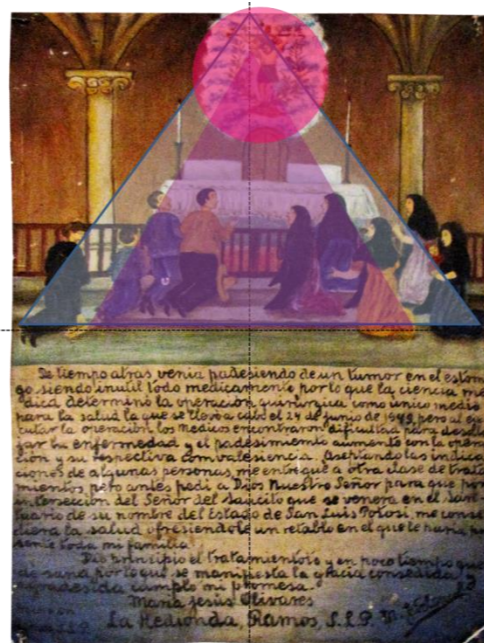 De tiempo atras venia padesiendo de un tumor en el estom
go siendo inutil todo medicamento por lo que la ciencia me
dica determinó la operación quirurgica como unico medio
para la salud la que se llevó a cabo el 24 de junio de 194 pero al eje
cutar la operación los medicos encontraron dificultad para desalo
jar la enfermedad y el padesimiento aumento con la opera
ción y su respectiva convalesiencia. Aseptando las indica
ciones de algunas personas, me entregue a otra clase de trata
mientos, pero antes pedi a Dios Nuestro Señor para que por
intersección del Señor del Saucito que se venera en el San
tuario de su nombre del Estado de San Luis Potosí, me conse
diera la salud ofresiendole un retablo en el que le haria pre
sente toda mi familia.
Dió principio el tratamiento y en poco tiempo que
de sana por lo que se manifiesta la gracia consedida y
agradesida cumplo mi promesa.
Maria Jesus Olivares
La Hedionda, Ramos, S.L.P.